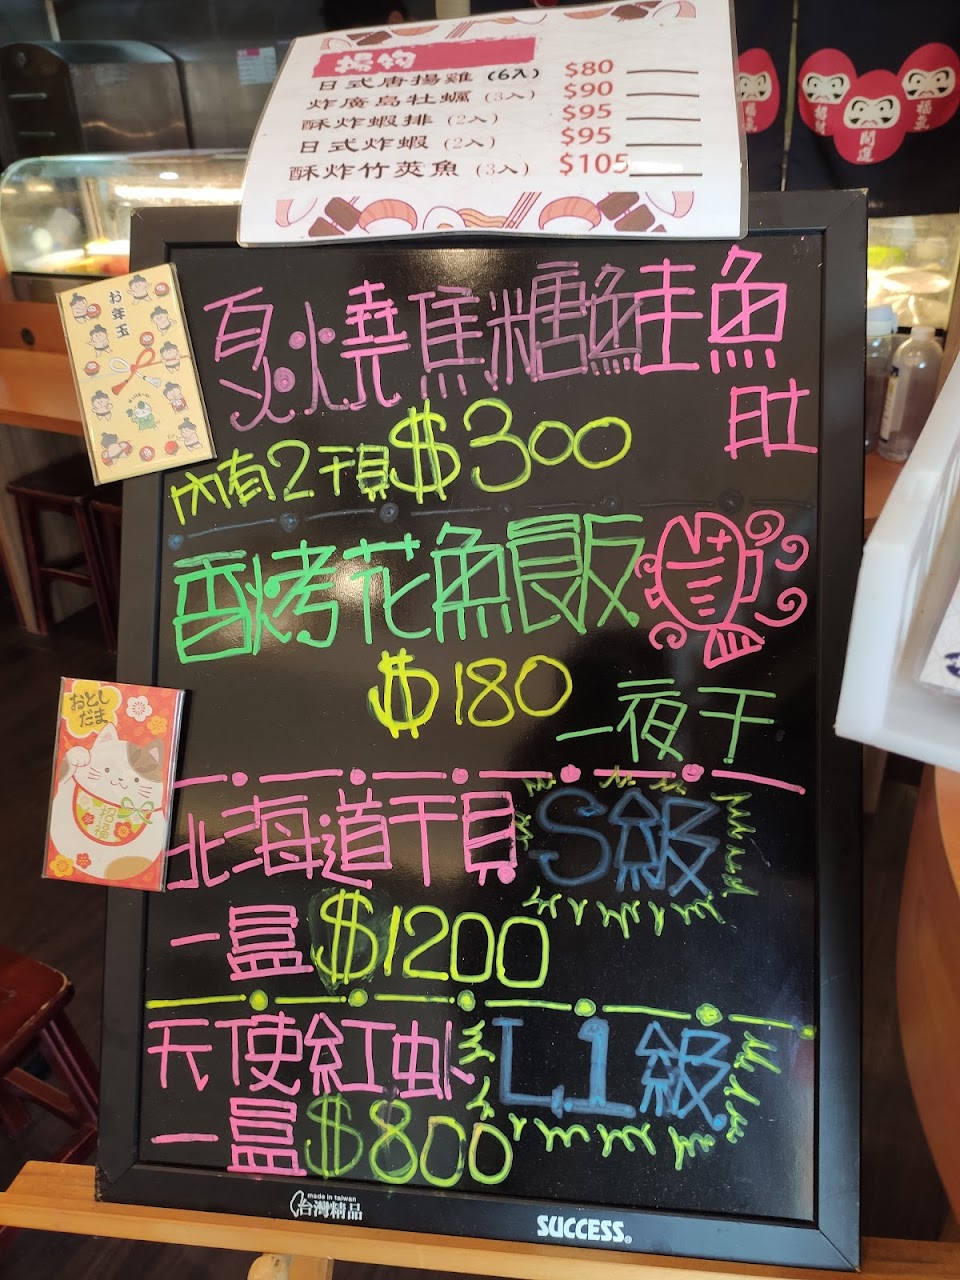 揚物
日式唐揚雞 (6入) $80
炸廣島牡蠣 (3入) $90
酥炸蝦排 (2入) $95
日式炸蝦 (2入) $95
酥炸竹莢魚 (3入) $105
招財
開運
福氣
お年玉
炙燒焦糖鮭魚
肚
內有2干貝 $300
酥烤花魚飯
$180
一夜干
おとし
だま
北海道干貝 S級
一盒 $1200
天使紅虾 L1級
一盒 $800
made in taiwan
台灣精品
SUCCESS®